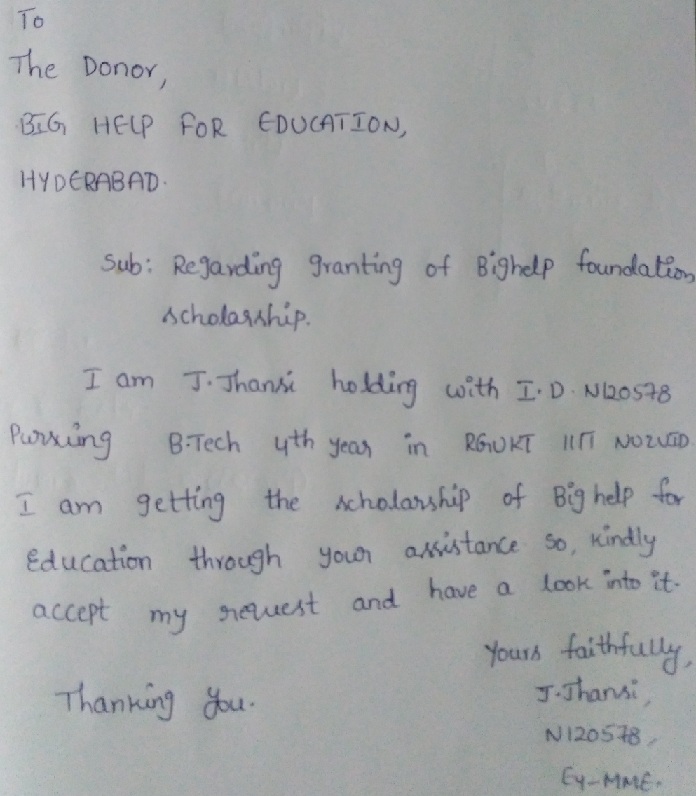 To
The Donor,
BIG HELP FOR EDUCATION,
HYDERABAD.
Sub: Regarding granting of Bighelp foundation
scholarship.
I am J. Jhansi holding with I.D. N120578
Pursuing B.Tech 4th year in RGUKT IIIT NUZVID.
I am getting the scholarship of Big help for
Education through your assistance so, kindly
accept my request and have a look into it.
Yours faithfully,
Thanking you.
J. Jhansi,
N120578,
E4-MME.